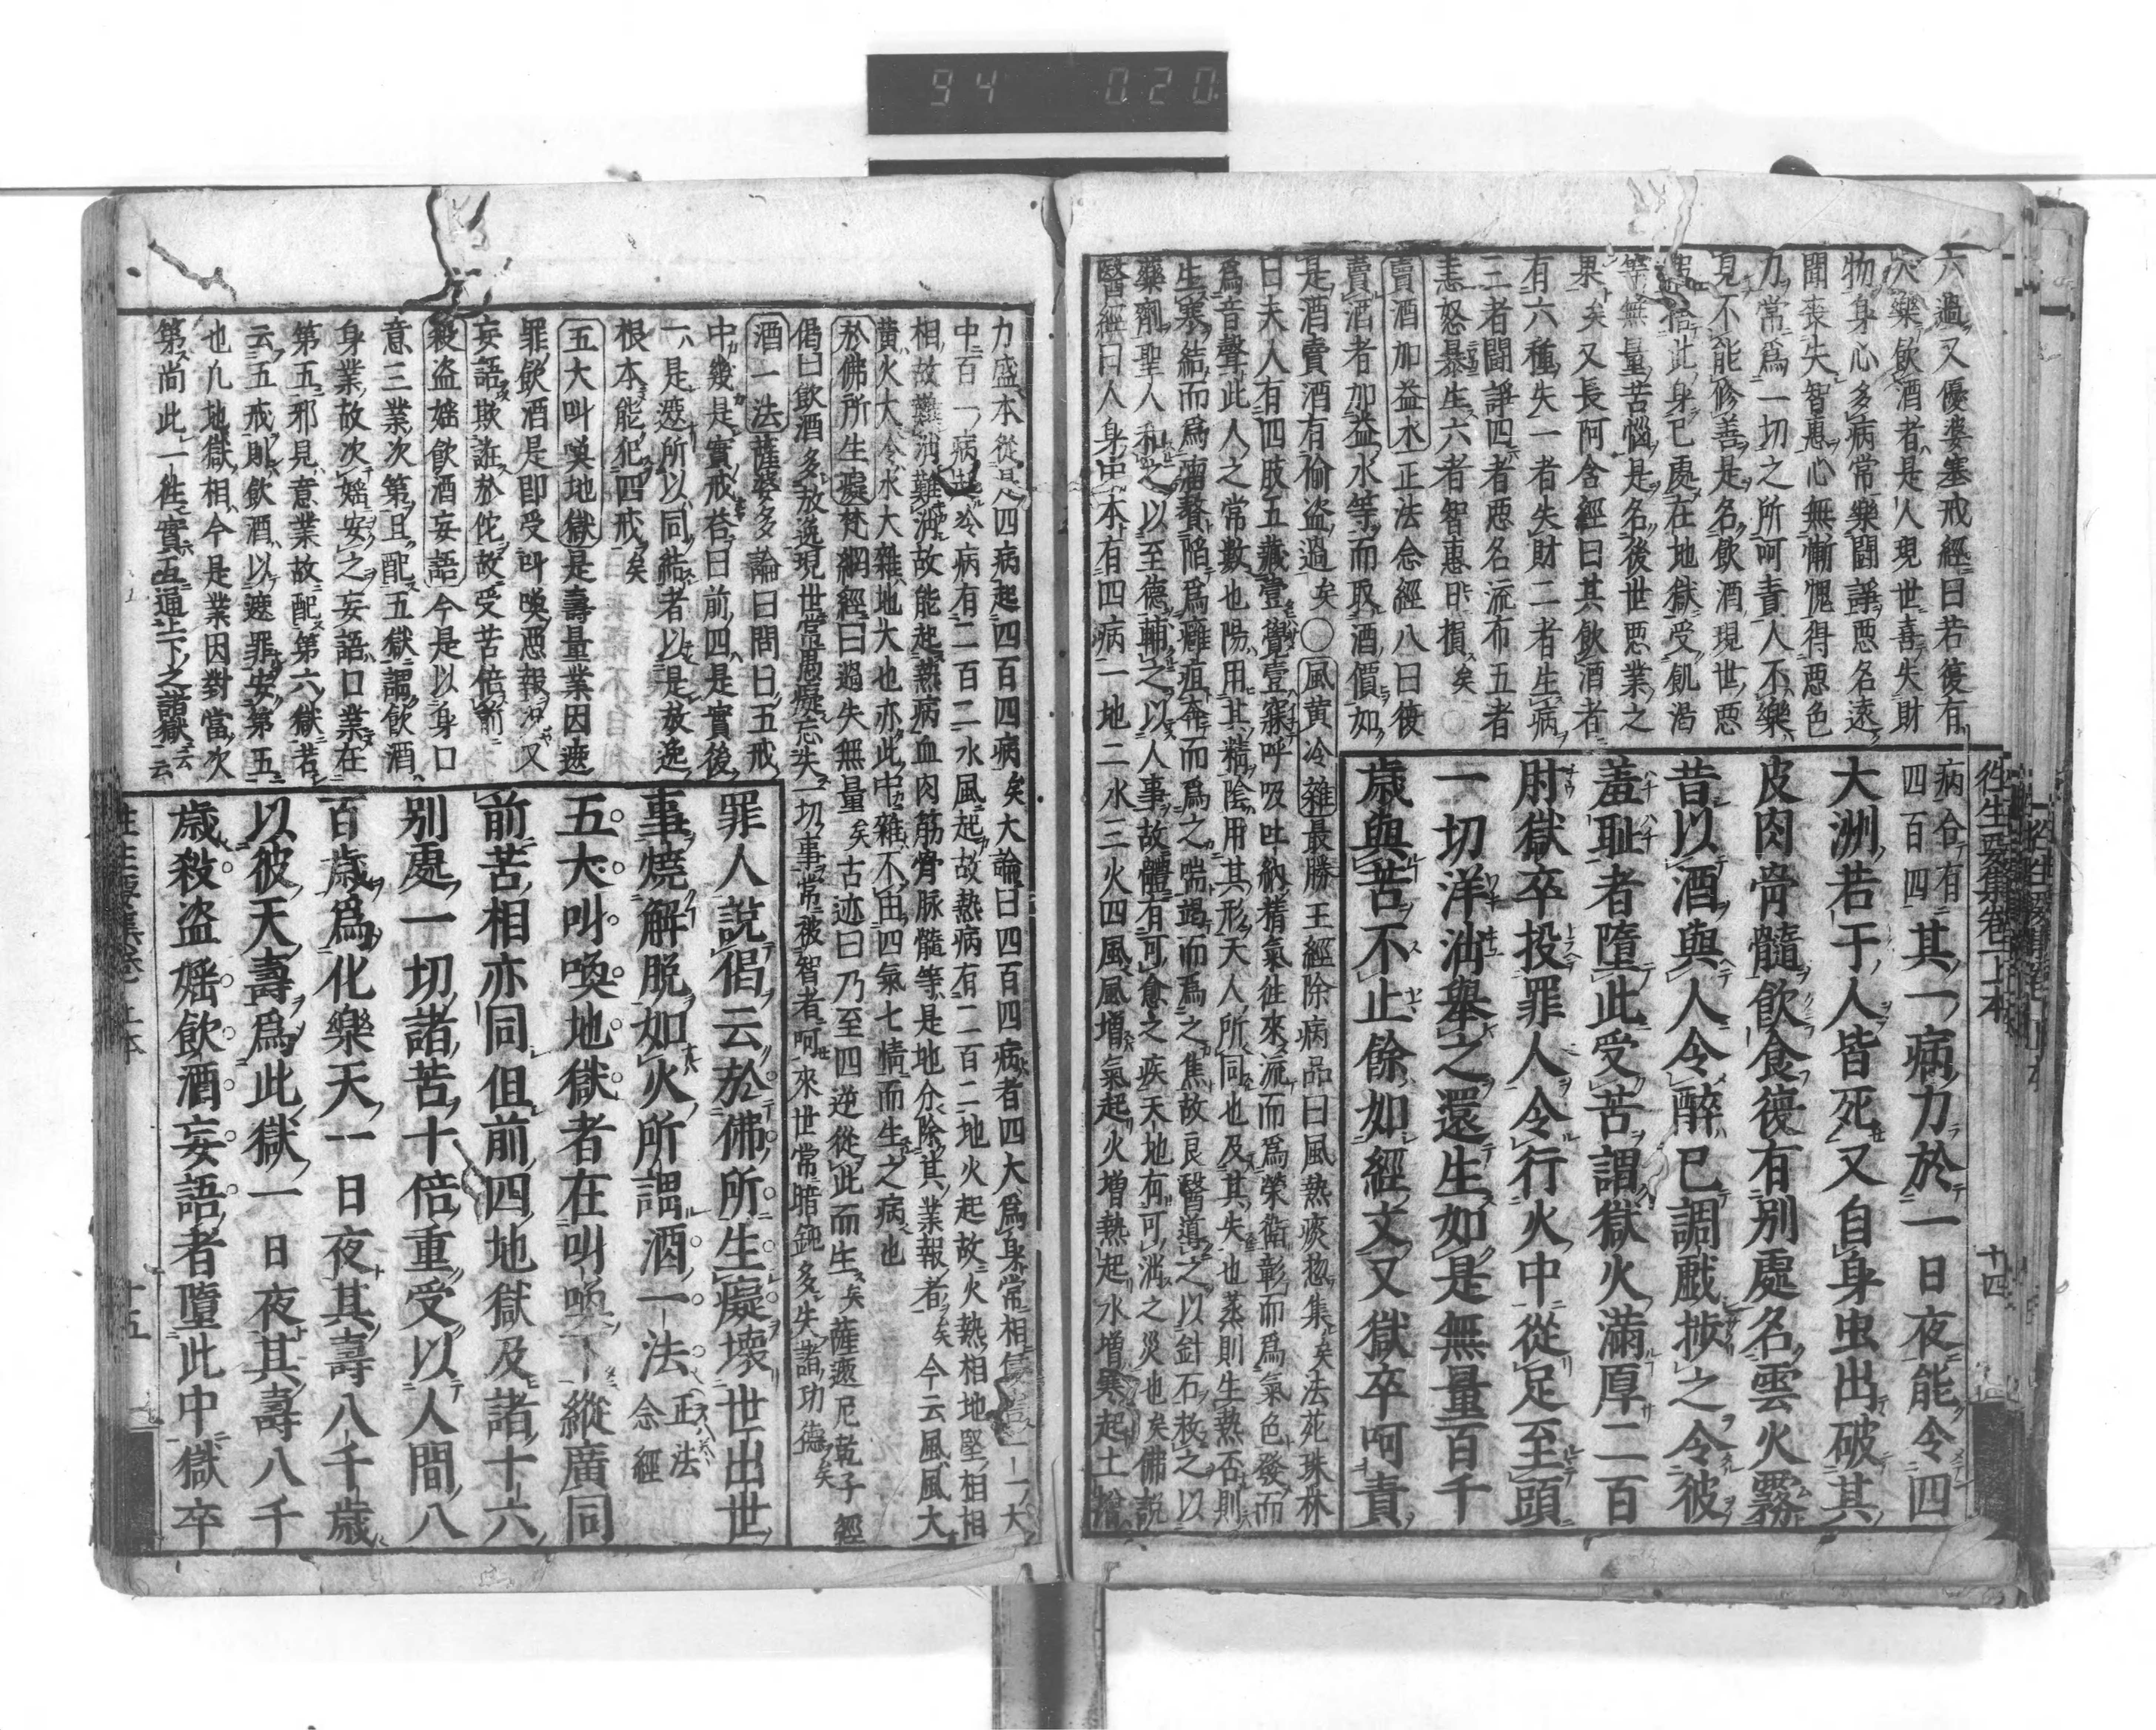 94 020
往生要集卷上本
十四
六過又優婆塞戒經曰若復有
人樂飲酒者是人現世喜失財
物身心多病常樂鬪諍惡名遠
聞喪失智惠心無慚愧得惡色
力常爲一切之所呵責人不樂
見不能修善是名飲酒現世惡
此身已處在地獄受飢渴
等無量苦惱是名後世惡業之
果矣又長阿含經曰其飲酒者
有六種失一者失財二者生病
三者鬪諍四者惡名流布五者
恚怒暴生六者智惠日損矣○
賣酒加益水正法念經八曰彼
賣酒者加益水等而取酒價如
是酒賣酒有偷盜過矣○風黄冷雜最勝王經除病品曰風熱痰惣集矣法苑珠林
曰夫人有四肢五藏壹覺壹寐呼吸吐納精氣往來流而爲榮衛彰而爲氣色發而
爲音聲此人之常數也陽用其精陰用其形天人所同也及其失也蒸則生熱否則
生寒結而爲瘤贅陷爲癰疽奔而爲之喘竭而爲之焦故良醫道之以針石救之以
藥劑聖人和之以至德輔之以人事故體有可愈之疾天地有可消之災也矣佛説
醫經曰人身中本有四病一地二水三火四風風增氣起火增熱起水增寒起土增
病合有
四百四
其一病力於一日夜能令四
大洲若干人皆死又自身虫出破其
皮肉骨髓飲食復有別處名雲火霧
昔以酒與人令醉已調戲挊之令彼
羞耻者墮此受苦謂獄火滿厚二百
肘獄卒投罪人令行火中從足至頭
一切洋消擧之還生如是無量百千
歲與苦不止餘如經文又獄卒呵責
力盛本從是四病起四百四病矣大論曰四百四病者四大爲身常相侵害一一大
中百一病起冷病有二百二水風起故熱病有二百二地火起故火熱相地堅相相
相故難消難消故能起熱病血肉筋骨脉髓等是地分除其業報者矣今云風風大
黄火大冷水大雜地大也亦此中雜不由四氣七情而生之病也
於佛所生癡梵網經曰過失無量矣古迹曰乃至四逆從此而生矣薩遮尼乾子經
偈曰飲酒多放逸現世常愚癡忘失一切事常被智者呵來世常暗鈍多失諸功德矣
酒一法薩婆多論曰問曰五戒
中幾是實戒荅曰前四是實後
一是遮所以同結者以是放逸
根本能犯四戒矣
五大叫喚地獄是壽量業因遮
罪飲酒是即受叫喚惡報又
妄語欺誑於佗故受苦倍前
殺盜婬飲酒妄語今是以身口
意三業次第且配五獄謂飲酒
身業故次婬妄之妄語口業在
第五邪見意業故配第六獄若
云五戒則飲酒以遮罪安第五
也凡地獄相今是業因對當次
第尚此一往實五通上下之諸獄云云
罪人説偈云於佛所生癡壞世出世
事燒解脱如火所謂酒一法正法
念經
五大叫喚地獄者在叫喚下縱廣同
前苦相亦同但前四地獄及諸十六
別處一切諸苦十倍重受以人間八
百歲爲化樂天一日夜其壽八千歲
以彼天壽爲此獄一日夜其壽八千
歲殺盜婬飲酒妄語者墮此中獄卒
往生要集卷上本
十五